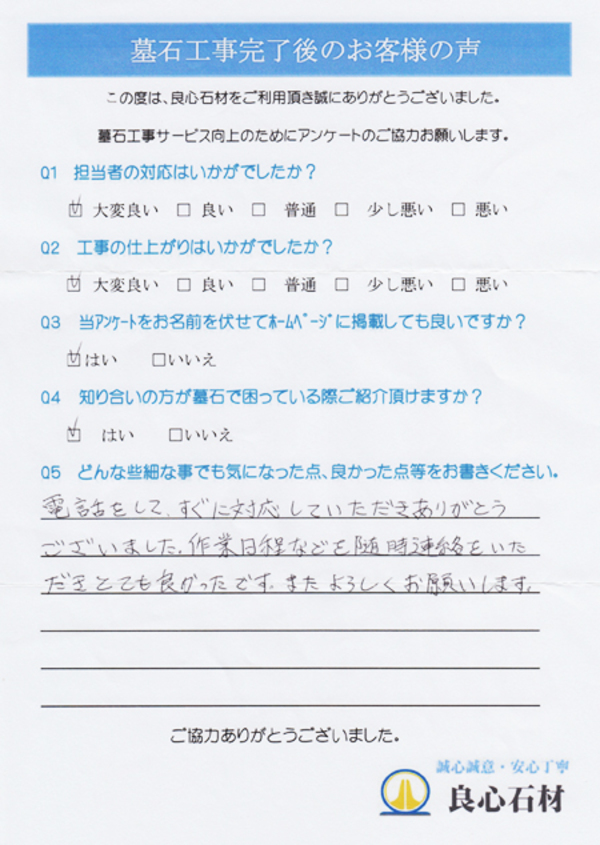 墓石工事完了後のお客様の声
この度は、良心石材をご利用頂き誠にありがとうございました。
墓石工事サービス向上のためにアンケートのご協力お願いします。
Q1 担当者の対応はいかがでしたか？
☑ 大変良い □ 良い □ 普通 □ 少し悪い □ 悪い
Q2 工事の仕上がりはいかがでしたか？
☑ 大変良い □ 良い □ 普通 □ 少し悪い □ 悪い
Q3 当ｱﾝｹｰﾄをお名前を伏せてﾎｰﾑﾍﾟｰｼﾞに掲載しても良いですか？
☑はい □いいえ
Q4 知り合いの方が墓石で困っている際ご紹介頂けますか？
☑ はい □いいえ
Q5 どんな些細な事でも気になった点、良かった点等をお書きください。
電話をして、すぐに対応していただきありがとう
ございました。作業日程などを随時連絡をいた
だきとても良かったです。またよろしくお願いします。
ご協力ありがとうございました。
誠心誠意・安心丁寧
良心石材